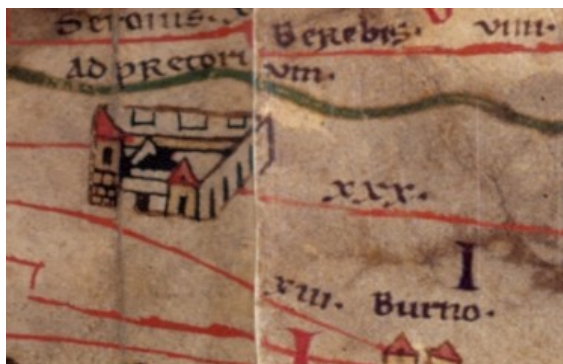 Seronis. X
Berebis. VIIII.
AD PRETORI VIII.
XXX.
I
XIII. Burno.
I